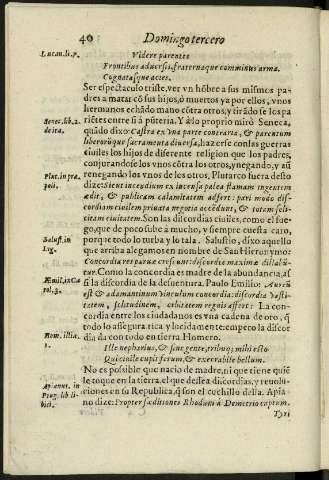 40 Domingo tercero
Lucan.li.7.
Videre parentes
Frontibus aduersis, fraternaque comminus arma.
Cognatasque acies.
Ser espectaculo triste, ver vn hõbre a sus mismos pa-
dres a matar cõ sus hijos, ó muertos ya por ellos, vnos
hermanos echãdo mano cõtra otros, y tirãdose los pa
riẽtes entre si â puñeria. Y a lo propio mirò Seneca,
Senec.lib.2.
de ira.
quãdo dixo: Castra ex vna parte contraria, & parentum
liberorũque sacramenta diuersa, hazerse con las guerras
ciuiles los hijos de diferente religion que los padres,
conjurandose los vnos cõtra los otros, y negando, y aũ
renegando los vnos de los otros. Plutarco fuera desto
Plut. in præ
dize: Sient incẽdium ex incensa palea flamam ingentem
ædit, & publicam calamitatem adfert: pari modo dis-
cordiam ciuilem priuata negotia accẽdunt, & totem
ciuitatem. Son las discordias ciuiles, como el fue-
go, que de poco sube à mucho, y siempre cuesta caro,
porque todo lo turba y lo tala. Salustio, dixo aquello
Salust. in
Iug.
que arriba alegamos en nombre de San Hieronymo:
Concordia res paruæ crescunt: discordia maximæ dilabũ-
tur. Como la concordia es madre de la abundancia, aſ
si la discordia de la desuentura. Paulo Emilio: Aureũ
est & adamantinum vinculum concordia: discordia vasti-
tatem, solitudinem, exitium regnis affert: La con-
cordia entre los ciudadanos es vna cadena de oro, q̃
todo lo assegura rica y locidamente: empero la discor
dia da con todo en tierra. Homero.
Hom.
Ille nephanius, & sine gente, tribuq; mihi esto
Qui ciuile cupit ferum, & execrabile bellum.
No es possible que nacio de madre, ni que tiene quiẽ
le toque en la tierra, el que dessea discordias, y reuolu-
ciones en su Republica, q̃ son el cuchillo della. Apia-
Apianus. in
no dize: Propter seditiones Rhodum à Demetrio captum.
Tyri